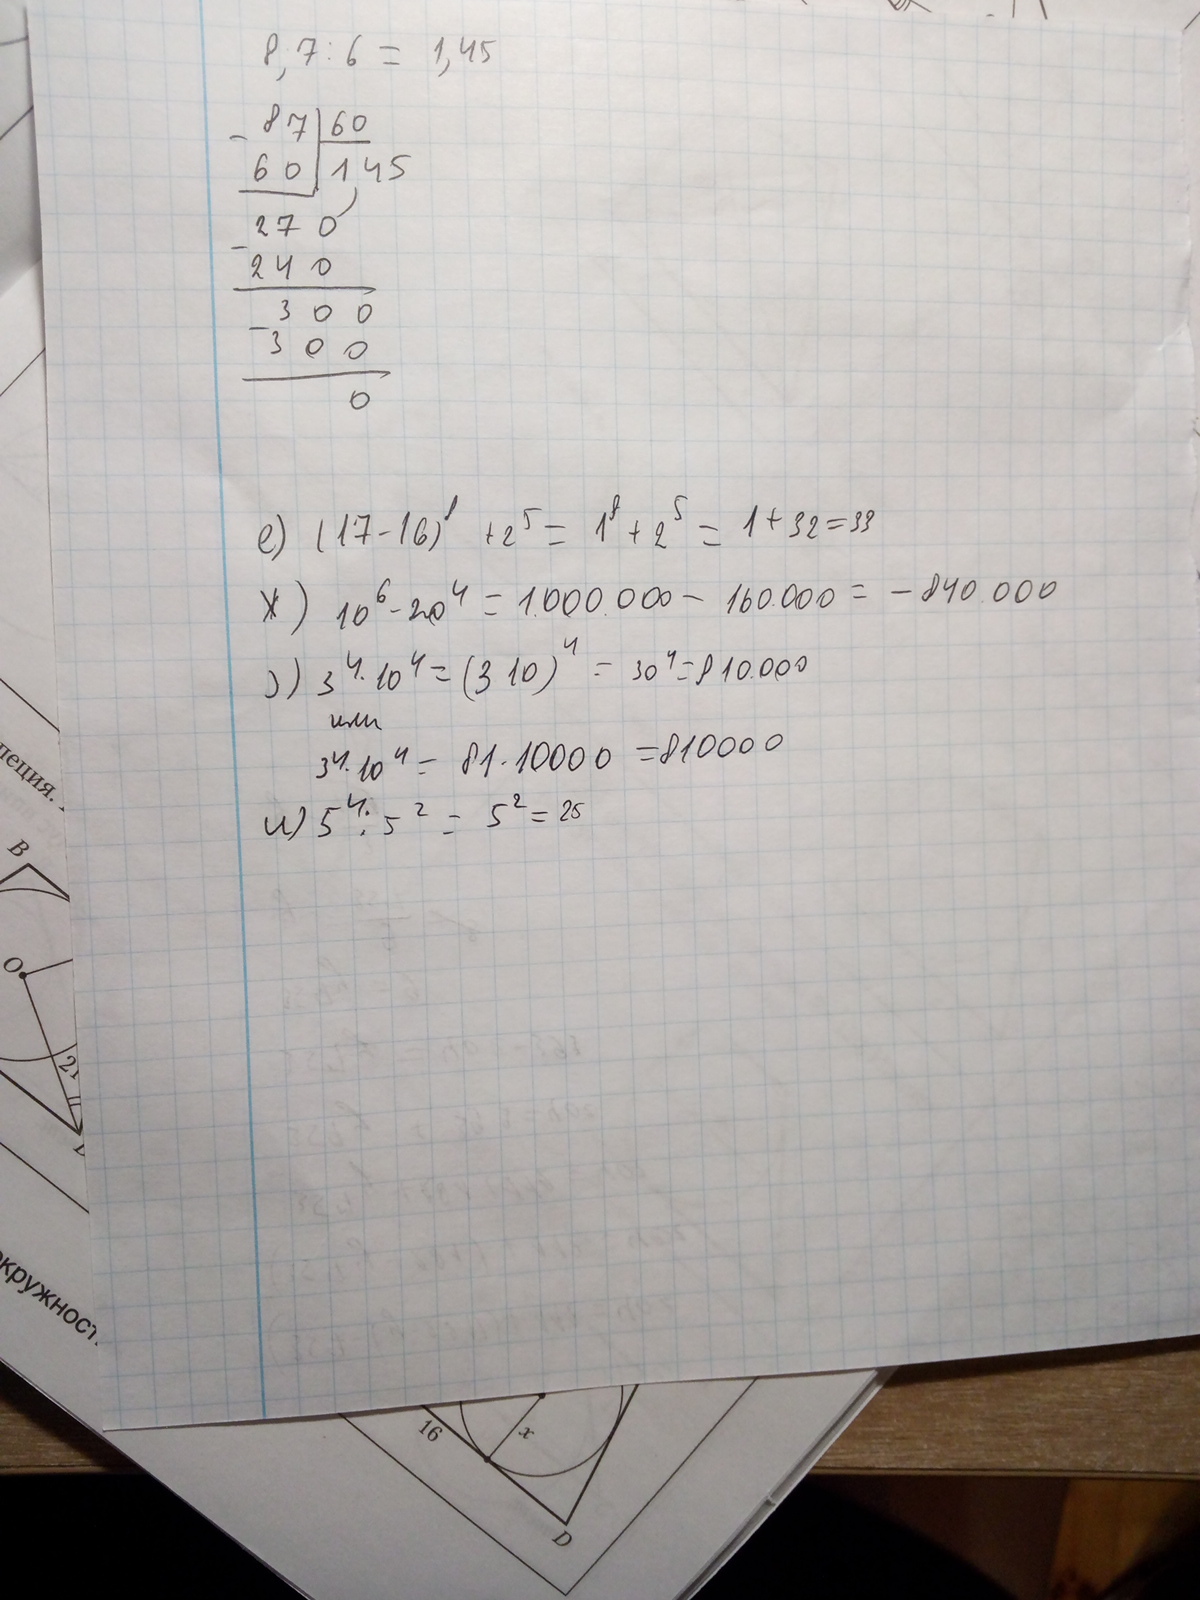 8,7:6 = 1,45
- 87 | 60
60 | 1 45
270
- 240
- 300
300
0
е) (17-16)⁸ + 2⁵ = 1⁸ + 2⁵ = 1 + 32 = 33
ж) 10⁶ - 20⁴ = 1.000.000 - 160.000 = - 840.000
з) 3⁴ · 10⁴ = (3 10)⁴ = 30⁴ = 810.000
или
3⁴ · 10⁴ = 81 · 10000 = 810000
и) 5⁴ : 5² = 5² = 25
пеция.
B
O
2
окружност
16
x
D